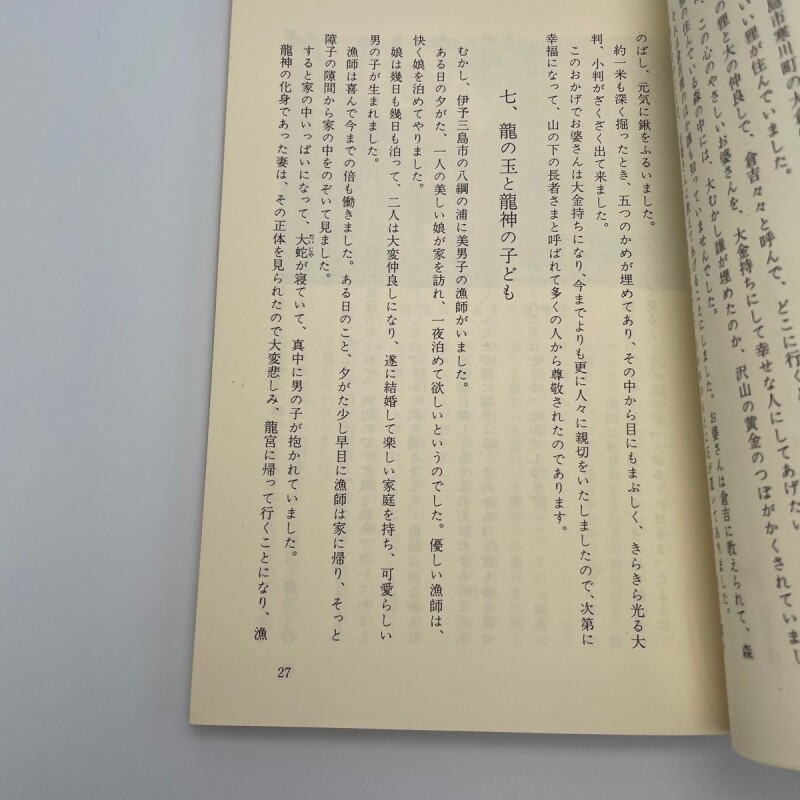 島市寒川町の大倉
いい狸が住んでいました。
の狸と大の仲良しで、倉吉々々と呼んで、どこに行くと
、この心のやさしいお婆さんを、大金持ちにして幸せな人にしてあげたい
の住んでいる森の中には、大むかし誰が埋めたのか、沢山の黄金のつぼがかくされていまし
切っていませんでした。
ることにしました。お婆さんは倉吉に教えられて、森
のばし、元気に鍬をふるいました。
約一米も深く掘ったとき、五つのかめが埋めてあり、その中から目にもまぶしく、きらきら光る大
判、小判がざくざく出て来ました。
このおかげでお婆さんは大金持ちになり、今までよりも更に人々に親切をいたしましたので、次第に
幸福になって、山の下の長者さまと呼ばれて多くの人から尊敬されたのであります。
七、龍の玉と龍神の子ども
むかし、伊予三島市の八綱の浦に美男子の漁師がいました。
ある日の夕がた、一人の美しい娘が家を訪れ、一夜泊めて欲しいというのでした。優しい漁師は、
快く娘を泊めてやりました。
娘は幾日も幾日も泊って、二人は大変仲良しになり、遂に結婚して楽しい家庭を持ち、可愛らしい
男の子が生まれました。
漁師は喜んで今までの倍も働きました。ある日のこと、夕がた少し早目に漁師は家に帰り、そっと
障子の隙間から家の中をのぞいて見ました。
すると家の中いっぱいになって、大蛇が寝ていて、真中に男の子が抱かれていました。
だいじや
龍神の化身であった妻は、その正体を見られたので大変悲しみ、龍宮に帰って行くことになり、漁
27